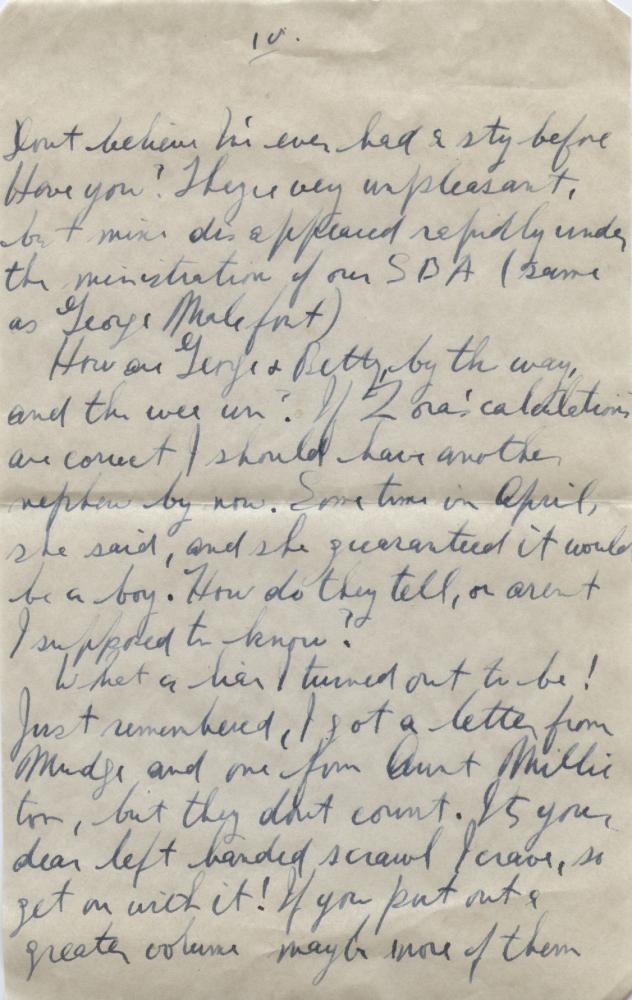 IV.
Dont believe I'v ever had a sty before
Have you? Theyre very unpleasant,
but mine disappeared rapidly under
the ministration of our SBA (same
as George Malefont)
How are George & Betty, by the way,
and the wee un? If Zora's calculations
are correct I should have another
nephew by now. Some time in April,
she said, and she guaranteed it would
be a boy. How do they tell, or arent
I supposed to know?
What a liar I turned out to be!
Just remembered, I got a letter from
Mudge and one from Aunt Millie
too, but they dont count. Its your
dear left handed scrawl I crave, so
get on with it! If you put out a
greater volume maybe more of them